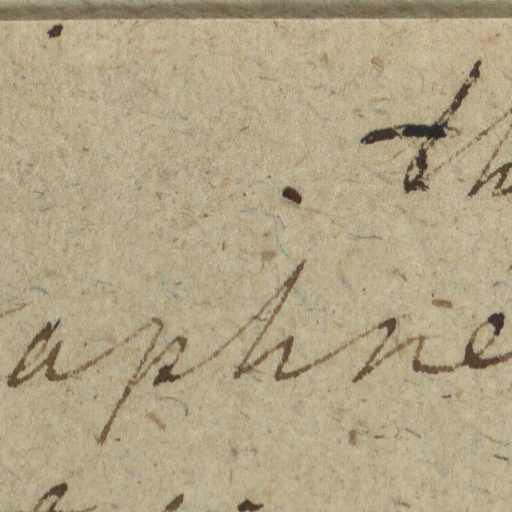 th
aphne